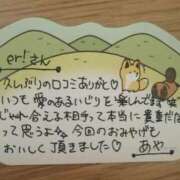 er!さん
久しぶりの口コミありがと♡
いつも愛のあるいじりを楽しんでます笑
じゃれ合える相手って本当に貴重だな
って思うよな〜 今回のおみやげも
おいしく頂きました♡
あや